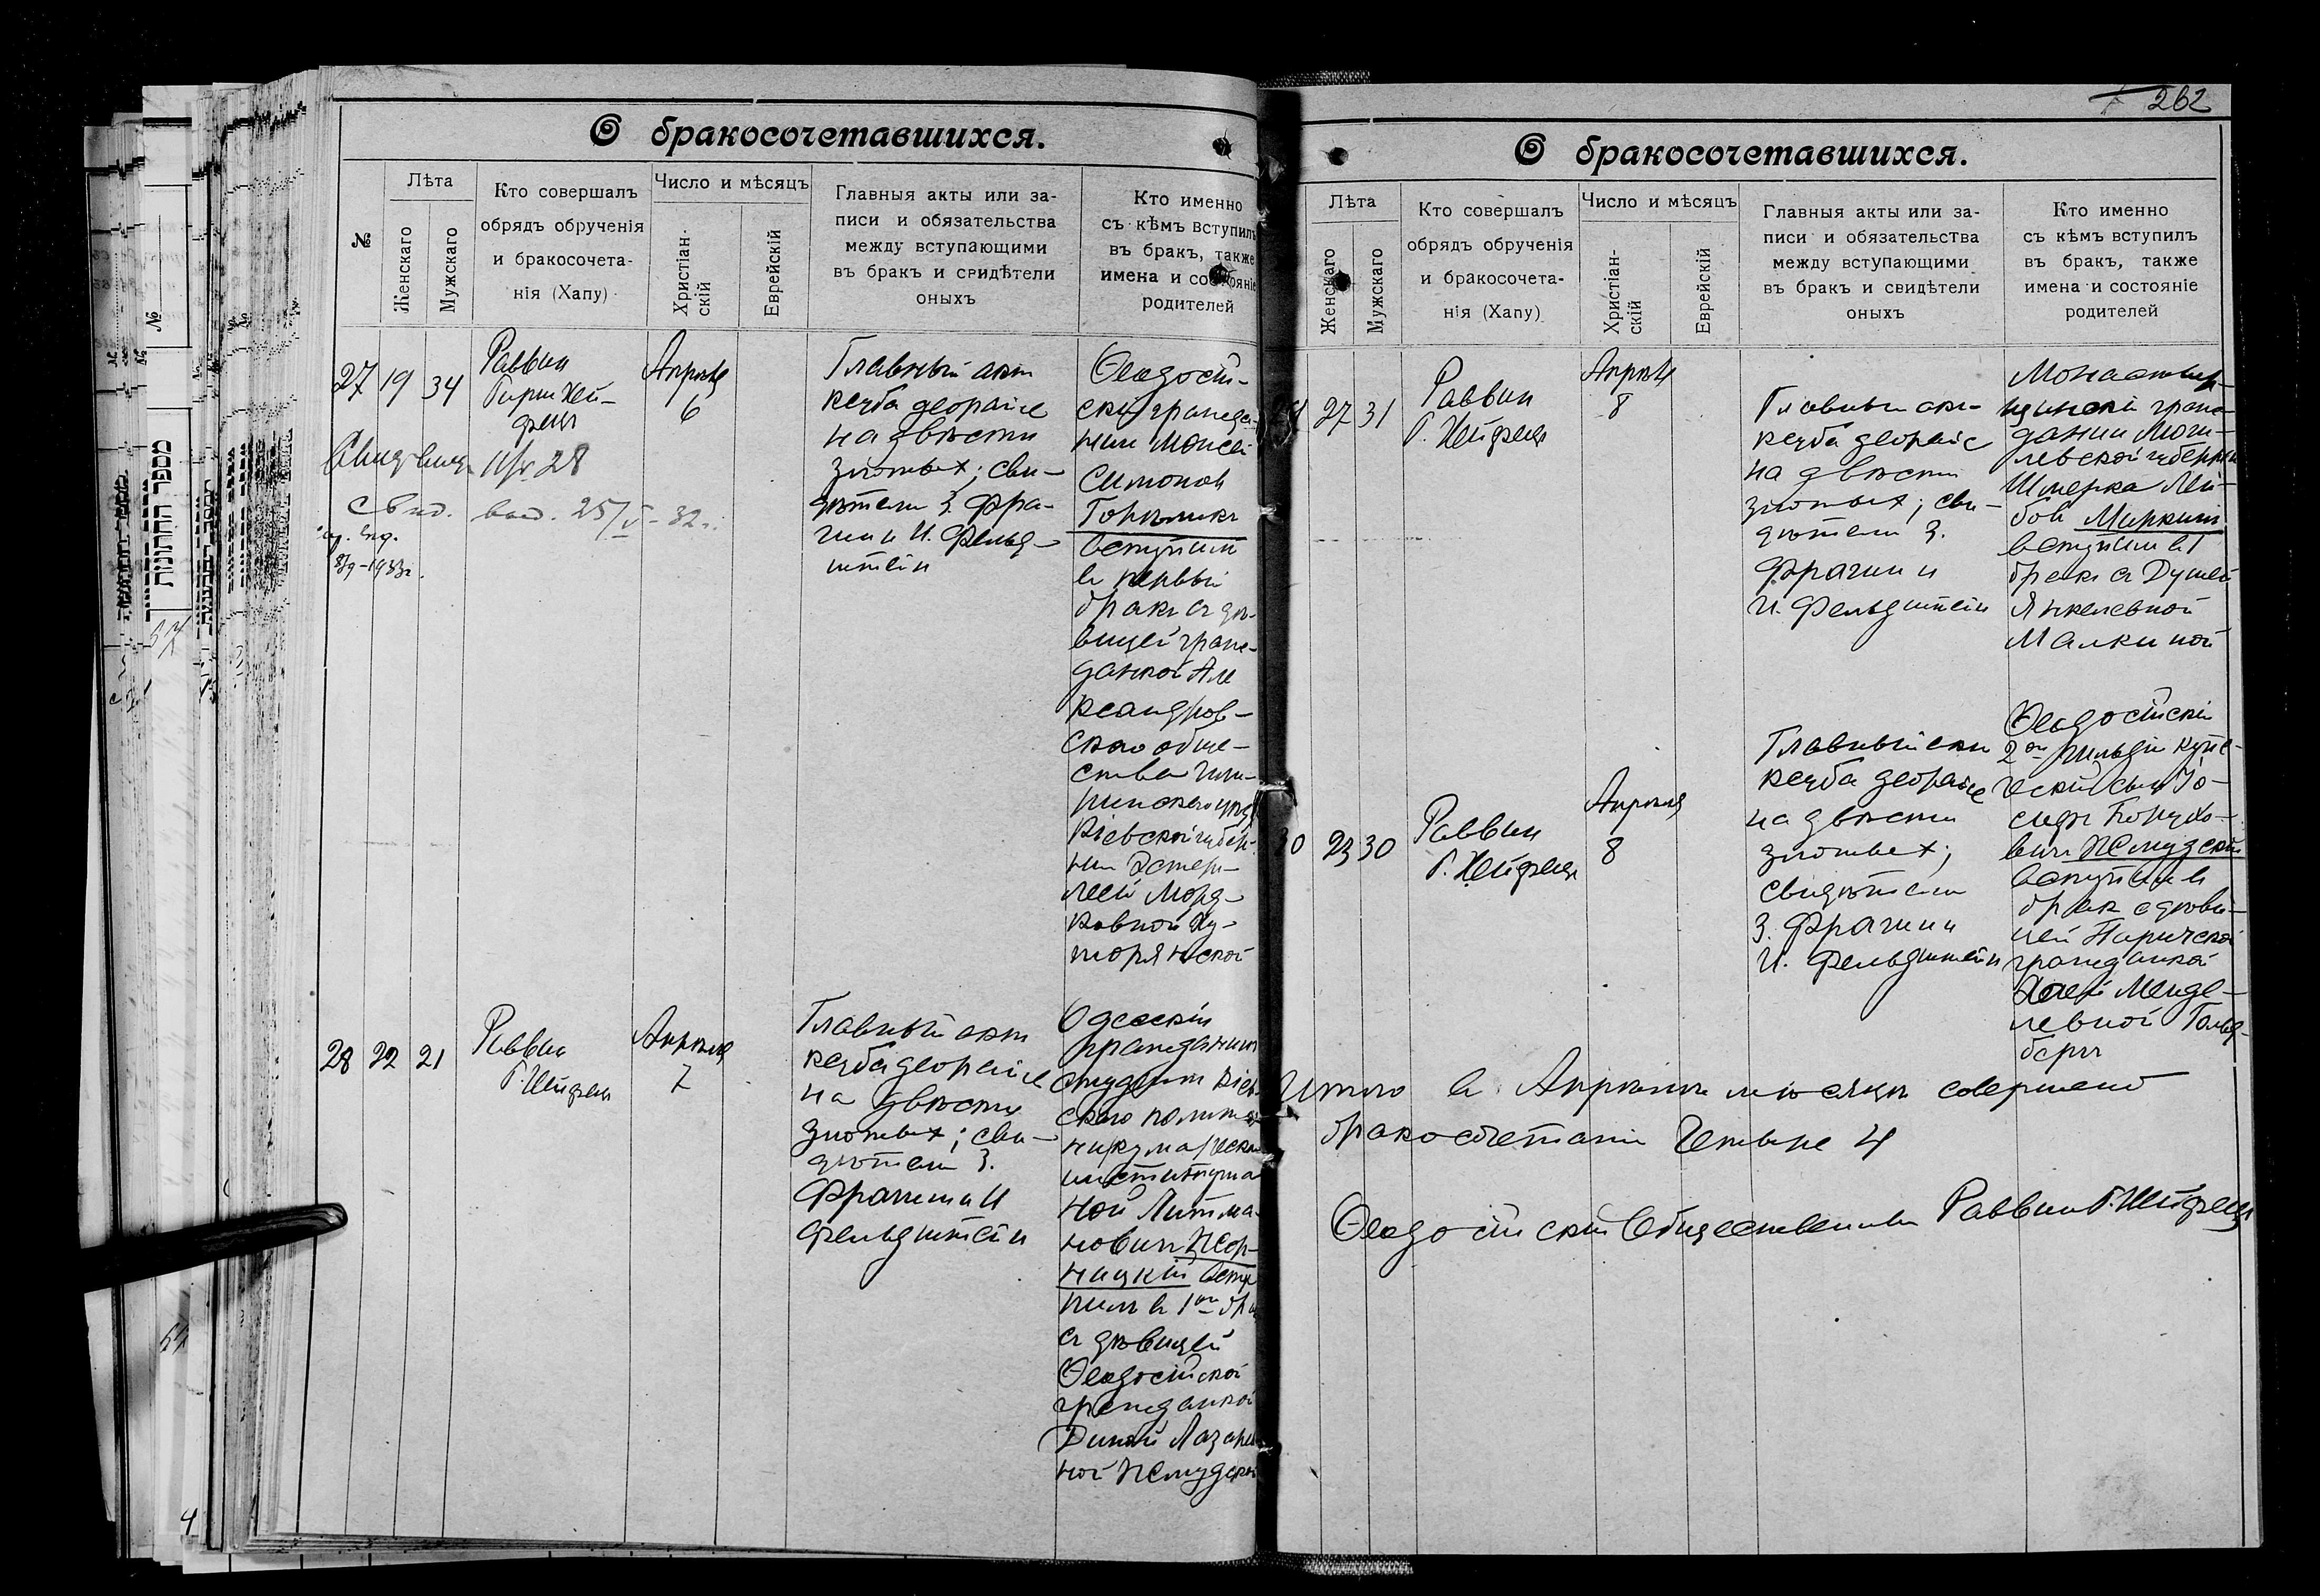 262
О бракосочетавшихся.
№
Лѣта
Женскаго
Мужскаго
Кто совершалъ
обрядъ обрученія
и бракосочета-
нія (Хапу)
Число и мѣсяцъ
Христіан-
скій
Еврейскій
Главныя акты или за-
писи и обязательства
между вступающими
въ бракъ и свидѣтели
оныхъ
Кто именно
съ кѣмъ вступилъ
въ бракъ, также
имена и состояніе
родителей
27 19 34
Раввин
Гирш Хей-
фец
Апрѣля
6
Главный акт
кесуба деорайсе
на двѣсти
злотых; сви-
дѣтели З. Фра-
гин и И. Фельд-
штейн
Ѳеодосій-
скій гражда-
нин Моисей
Симонов
Горѣлик
вступил
в первый
брак съ дѣ-
вицей граж-
данкой Але
ксандров-
скаго обще-
ства Чиги-
ринскаго уѣзда
Кіевской губер-
нии Эстер-
лей Морд-
ковной Ху-
торянской
№ 28
Свид. выд. 25/V - 32 г.
28 22 21
Раввин
Г. Хейфец
Апрѣля
7
Главный акт
кесуба деорайсе
на двѣсти
злотых; сви-
дѣтели З.
Фрагин и И
Фельдштейн
Одесскій
гражданин
студент Кіев-
скаго
института
Ной Литма-
нович Жор-
ницкій всту
пил в 1ый бра
съ дѣвицей
Ѳеодосійской
гражданкой
Диной Лазаре
ной Жмудской
О бракосочетавшихся.
Лѣта
Женскаго
Мужскаго
Кто совершалъ
обрядъ обрученія
и бракосочета-
нія (Хапу)
Число и мѣсяцъ
Христіан-
скій
Еврейскій
Главныя акты или за-
писи и обязательства
между вступающими
въ бракъ и свидѣтели
оныхъ
Кто именно
съ кѣмъ вступилъ
въ бракъ, также
имена и состояніе
родителей
27 31
Раввин
Г. Хейфец
Апрѣля
8
Главный акт
кесуба деорайсе
на двѣсти
злотых; сви-
дѣтели З.
Фрагин и
И. Фельдштейн
Монастыр-
щинскій граж-
данин Моги-
левской губерніи
Шмерка Лей-
бов Миркин
вступил в 1
брак съ Душей
Янкелевной
Малкиной
30 23 30
Раввин
Г. Хейфец
Апрѣля
8
Главный акт
кесуба деорайсе
на двѣсти
злотых;
свидѣтели
З. Фрагин и
И. Фельдштейн
Ѳеодосійскій
2ой гильдіи купе-
ческій сын Іо-
сиф Борухо-
вич Жмудскій
вступил в
брак с дѣви-
цей Паричской
гражданкой
Хаей Менде-
левной Гольд-
берг
Итого в Апрѣлѣ мѣсяцѣ совершено
бракосочетаній четыре 4
Ѳеодосійскій Общественный Раввин Г. Хейфец